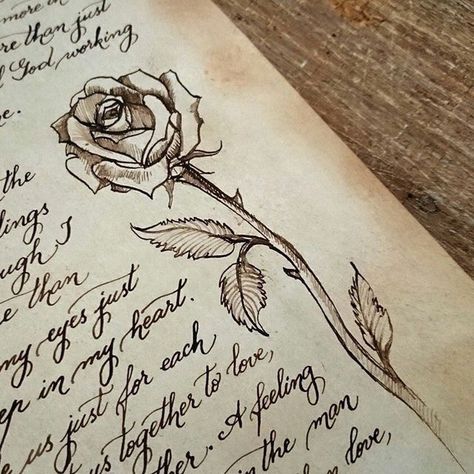 more in
re than just
God working
e.
the
lings
ough I
e than
my eyes just
ep in my heart.
e us just for each
us together to love,
ther. A feeling
in the man
in love,